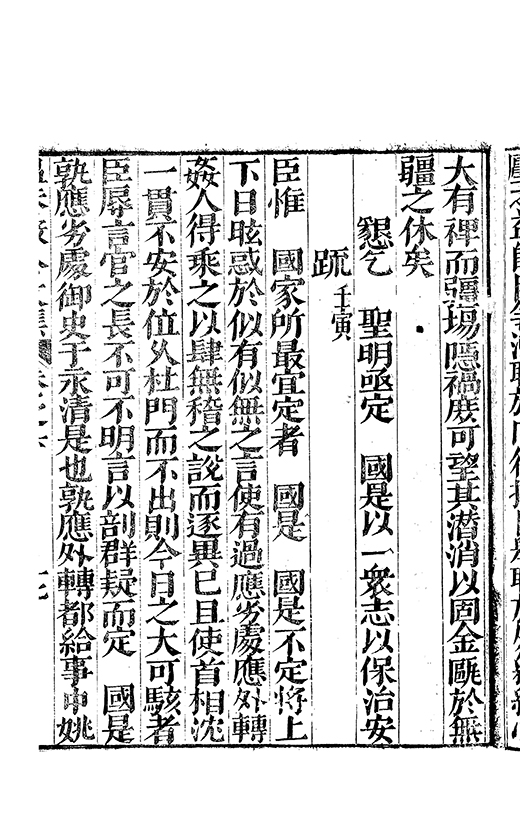 大有裨而彊埸隱禍庶可望其潜消以固金甌於無
疆之休矣
懇乞　聖明亟定　國是以一衆志以保治安
疏壬寅
臣惟　國家所最宜定者　國是　國是不定將上
下日眩惑於似有似無之言使有過應劣處應外轉
姦人得乘之以肆無稽之說而逐異已且使首相沈
一貫不安於位久杜門而不出則今日之大可駭者
臣辱言官之長不可不明言以剖群疑而定　國是
孰應劣處御史于永清是也孰應外轉都給事中姚